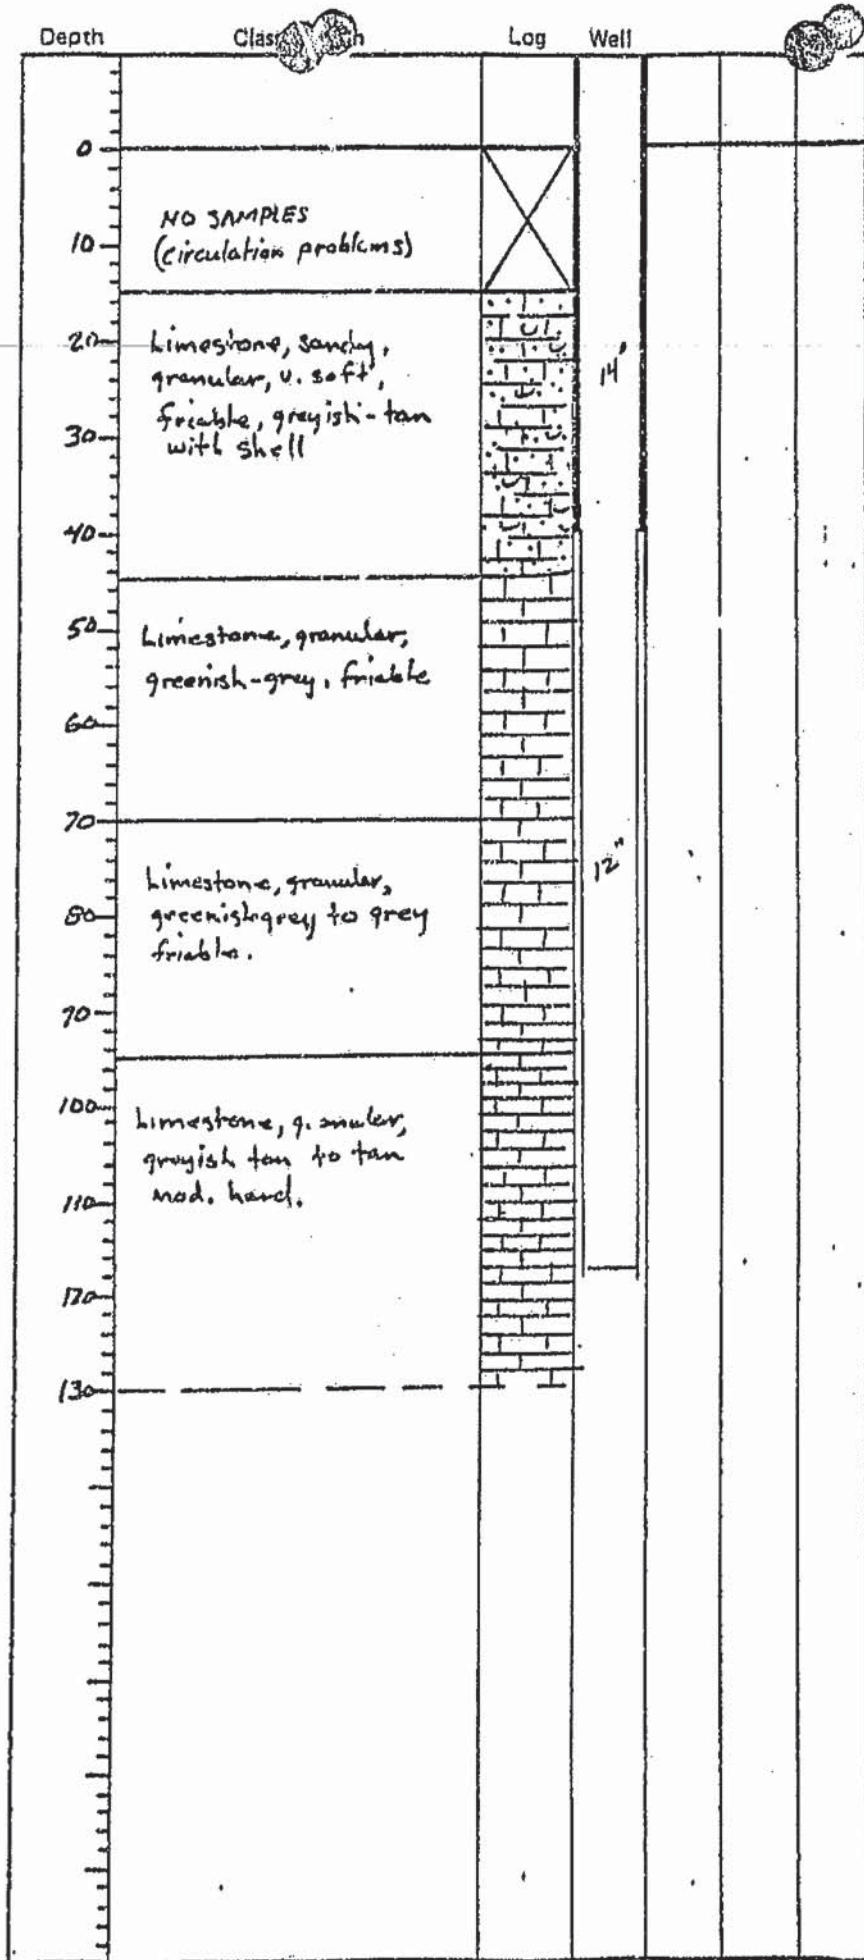 Depth Log Well
0
NO SAMPLES
(circulation problems)
10
20
Limestone, sandy,
granular, v. soft,
friable, greyish-tan
with shell
14"
30
40
50
Limestone, granular,
greenish-grey, friable
60
70
Limestone, granular,
greenish grey to grey
friable.
12"
80
90
100
Limestone,
greyish tan to tan
mod. hard.
110
120
130